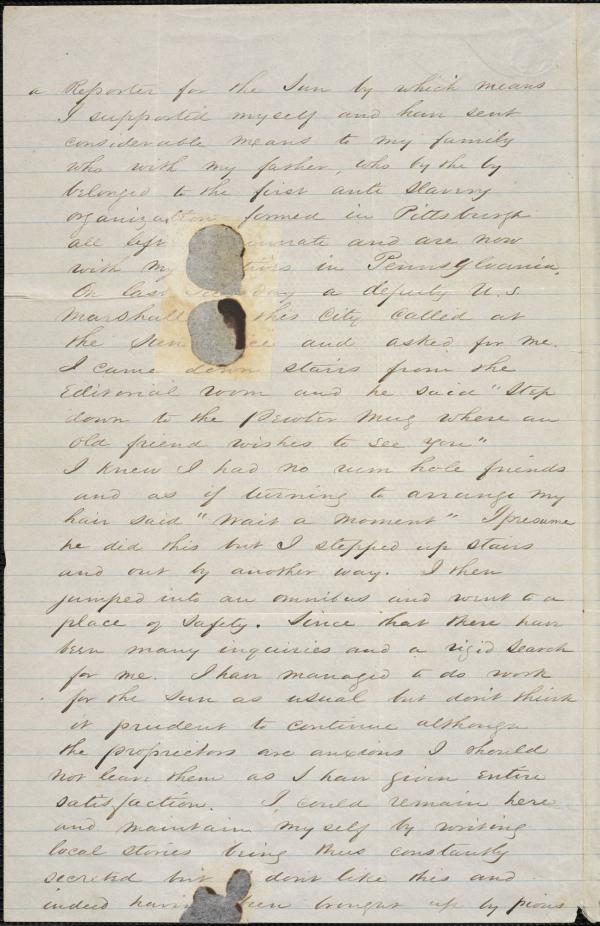 a Reporter for the Sun by which means
I supported myself and have sent
considerable means to my family
who with my father, who by the by
belonged to the first anti slavery
organization formed in Pittsburgh
all left innate and are now
with my in Pennsylvania.
On last a deputy U.S.
Marshall this City called at
the Sun and asked for me.
I came down stairs from the
Editorial room and he said "Step
down to the Pewter Mug where an
old friend wishes to see you"
I knew I had no rum hole friends
and as if turning to arrange my
hair said "Wait a moment" I presume
he did this but I stepped up stairs
and out by another way. I then
jumped into an omnibus and went to a
place of safety. Since that there have
been many inquiries and a rigid search
for me. I have managed to do work
for the Sun as usual but don't think
it prudent to continue although
the proprietors are anxious I should
not leave them as I have given entire
satisfaction. I could remain here
and maintain myself by writing
local stories being thus constantly
secreted but dont like this and
indeed having been brought up by pious